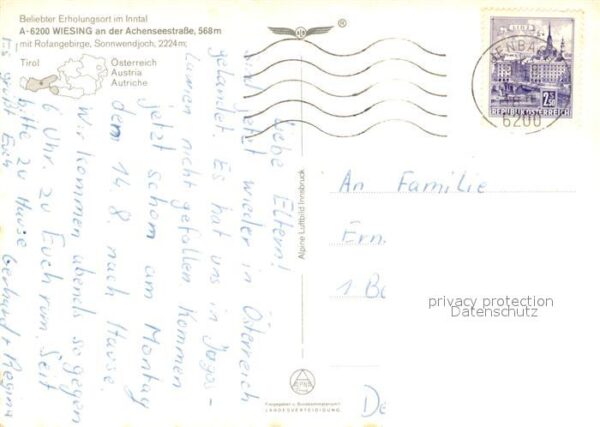 Beliebter Erholungsort im Inntal
A-6200 WIESING an der Achenseestraße, 568m
mit Rofangebirge, Sonnwendjoch, 2224m;
Tirol
Österreich
Austria
Autriche
®
Liebe Eltern!
Sind jetzt wieder in Österreich
gelandet. Es hat uns in Jugos-
lawien nicht gefallen. Kommen
jetzt schon am Montag
dem 14.8. nach Hause.
Wir kommen abends so gegen
6 Uhr. zu Euch rum. Seit
bitte zu Hause
Es grüßt Euch Gerhard + Regina
Alpine Luftbild Innsbruck
ALPINE
LANDESVERTEIDIGUNG
LINZ
2.50
REPUBLIK ÖSTERREICH
JENBACH
6200
An Familie
Ern
1 Be
De
privacy protection
Datenschutz